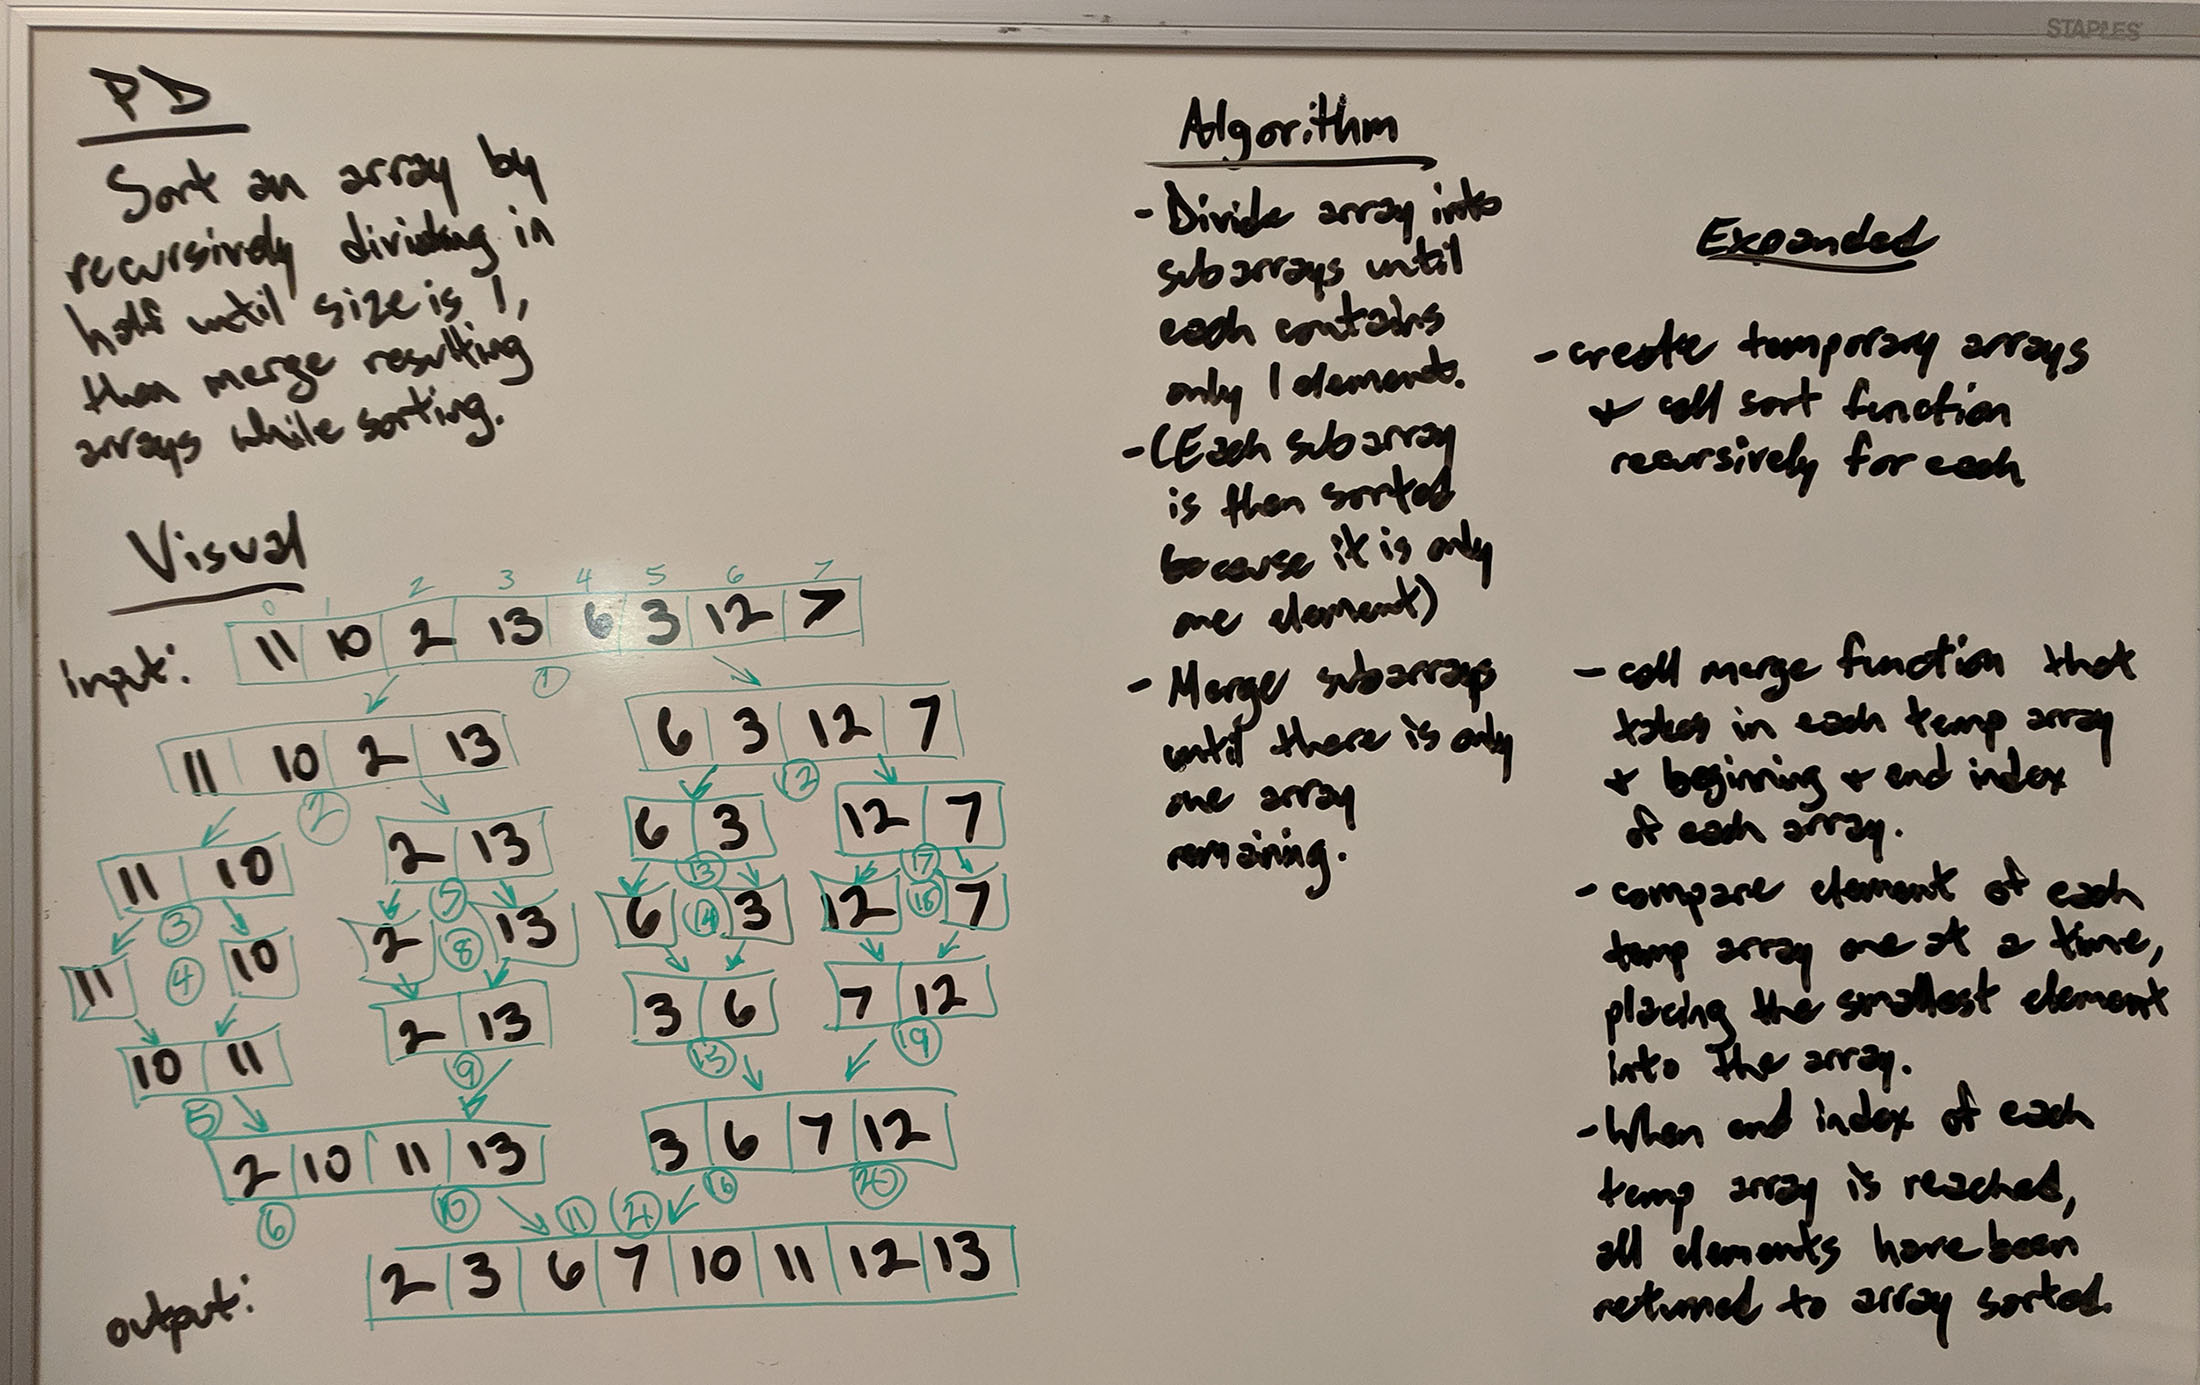 STAPLES
PD
Sort an array by
recursively dividing in
half until size is 1,
then merge resulting
arrays while sorting.
Visual
0 1 2 3 4 5 6 7
input: 11 10 2 13 6 3 12 7
1
11 10 2 13 6 3 12 7
2 12
11 10 2 13 6 3 12 7
3 13 17
11 4 10 2 8 13 6 14 3 12 7
10 11 2 13 3 6 7 12
5 9 15 19
2 10 11 13 3 6 7 12
6 10 11 21 16 20
output: 2 3 6 7 10 11 12 13
Algorithm
- Divide array into
subarrays until
each contains
only 1 element.
- (Each subarray
is then sorted
because it is only
one element)
- Merge subarrays
until there is only
one array
remaining.
Expanded
- create temporary arrays
+ call sort function
recursively for each
- call merge function that
takes in each temp array
+ beginning + end index
of each array.
- compare element of each
temp array one at a time,
placing the smallest element
into the array.
- When end index of each
temp array is reached,
all elements have been
returned to array sorted.